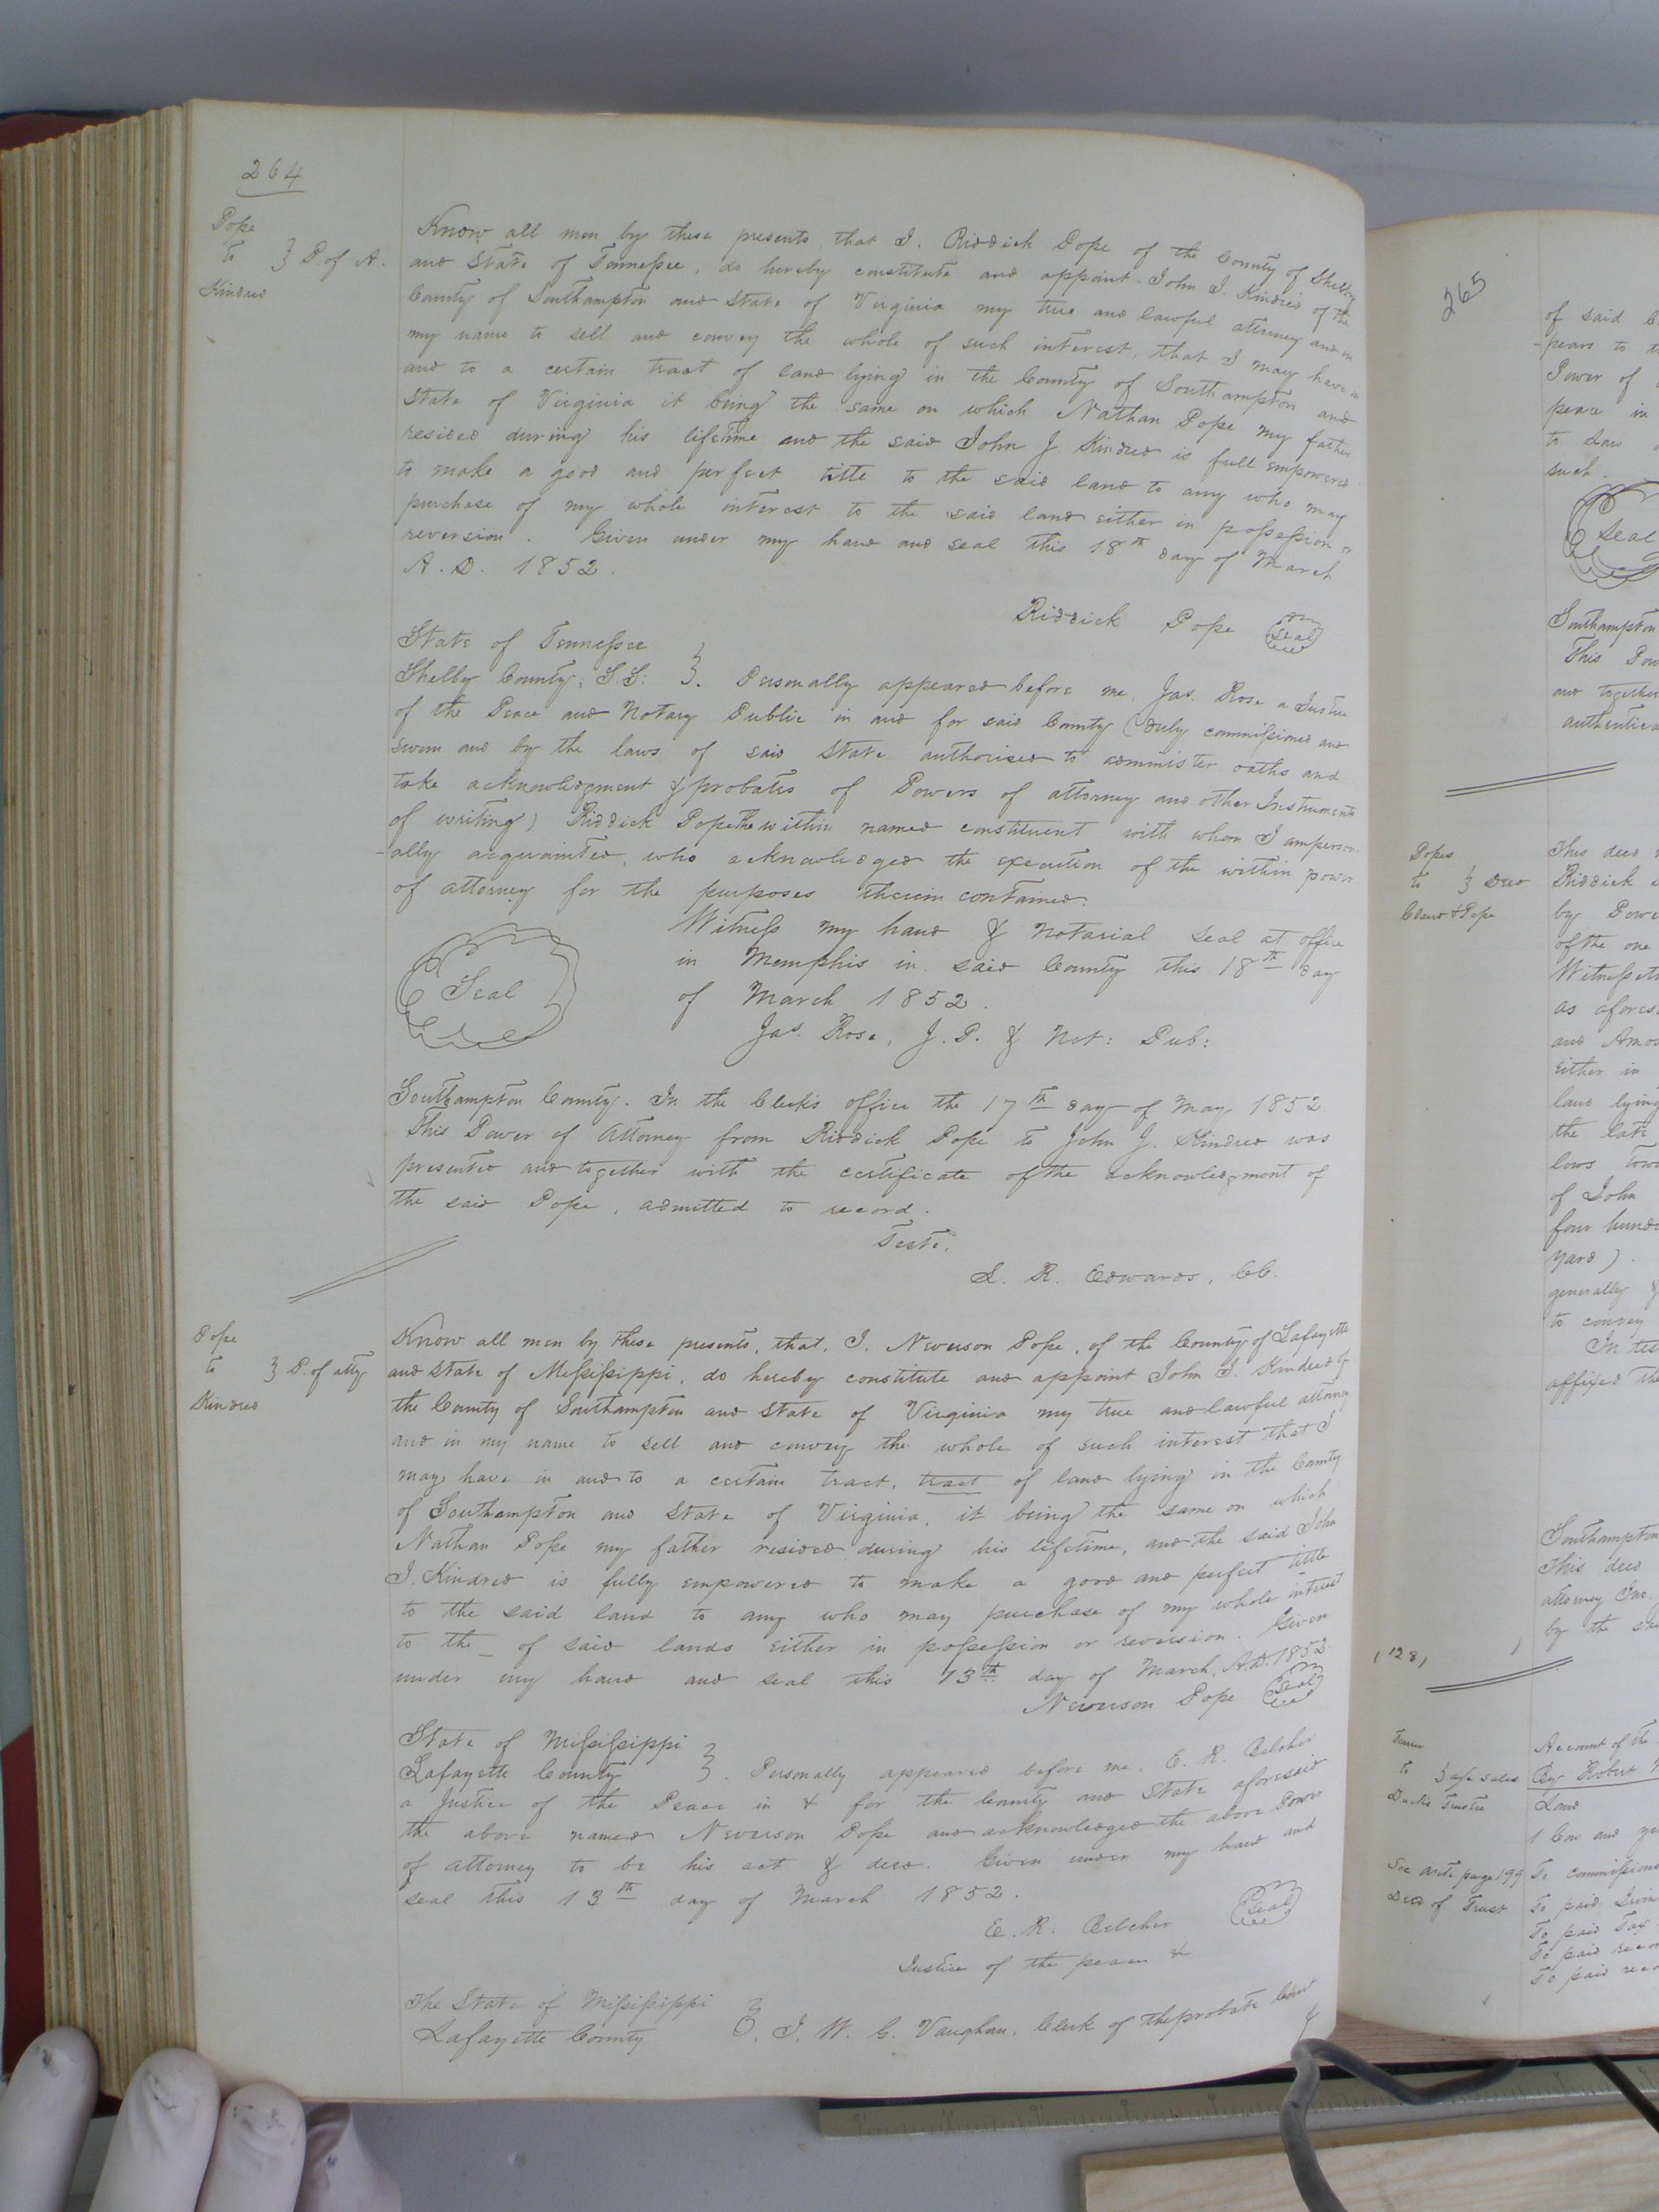 264
Pope
to } P. of A.
Kindred
Know all men by these presents, that I, Riddick Pope of the County of Shelby
and State of Tennessee, do hereby constitute and appoint John J. Kindred of the
County of Southampton and State of Virginia my true and lawful attorney and in
my name to sell and convey the whole of such interest, that I may have in
and to a certain tract of land lying in the County of Southampton and
State of Virginia it being the same on which Nathan Pope my father
resided during his lifetime and the said John J. Kindred is full empowered
to make a good and perfect title to the said land to any who may
purchase of my whole interest to the said land either in possession or
reversion. Given under my hand and seal this 18th day of March
A. D. 1852.
Riddick Pope Seal
State of Tennessee
Shelby County, S.S: }. Personally appeared before me, Jas. Rose a Justice
of the Peace and Notary Public in and for said County (duly commissioned and
sworn and by the laws of said State authorised to administer oaths and
take acknowledgment & probates of Powers of attorney and other Instruments
of writing) Riddick Pope the within named constituent with whom I am person-
-ally acquainted, who acknowledged the execution of the within power
of attorney for the purposes therein contained.
Witness my hand & Notarial seal at office
in Memphis in said County this 18th day
of March 1852.
Seal
Jas. Rose, J. P. & Not: Pub:
Southampton County. In the Clerk's office the 17th day of May 1852
This Power of Attorney from Riddick Pope to John J. Kindred was
presented and together with the certificate of the acknowledgment of
the said Pope, admitted to record.
Teste,
L. R. Edwards, CC.
Pope
to } P. of atty
Kindred
Know all men by these presents, that, I, Newsom Pope, of the County of Lafayette
and State of Mississippi, do hereby constitute and appoint John J. Kindred of
the County of Southampton and State of Virginia my true and lawful attorney
and in my name to sell and convey the whole of such interest that I
may have in and to a certain tract, tract of land lying in the County
of Southampton and State of Virginia, it being the same on which
Nathan Pope my father resided during his lifetime, and the said John
J. Kindred is fully empowered to make a good and perfect title
to the said land to any who may purchase of my whole interest
to the _ of said lands either in possession or reversion. Given
under my hand and seal this 13th day of March, A.D. 1852
Newsom Pope Seal
State of Mississippi
Lafayette County }. Personally appeared before me, E. R. Belcher
a Justice of the Peace in & for the County and State aforesaid
the above named Newsom Pope and acknowledged the above Power
of attorney to be his act & deed. Given under my hand and
seal this 13th day of March 1852.
E. R. Belcher Seal
Justice of the peace &
The State of Mississippi
Lafayette County }. I, W. C. Vaughan, Clerk of the probate Court
265
of said C
pears to th
Power of
peace in
to Law
such
Seal
Southampton
This Pow
and together
authentica
Popes
to } Deed
Claud & Pope
This deed
Riddick
by Powe
of the one
Witnesseth
as afores
and Amos
either in
land lying
the late
lows tow
of John
four hund
yard).
generally &
to convey
In tes
affixed the
Southampton
This deed
attorney Jno.
by the
(128)
to } a/c sales
Trustee
See ante page 199
Deed of Trust
Account of the
By Robert
Land
1 Cow and ye
To commissions
To paid
To paid Tax
To paid reco
To paid reco